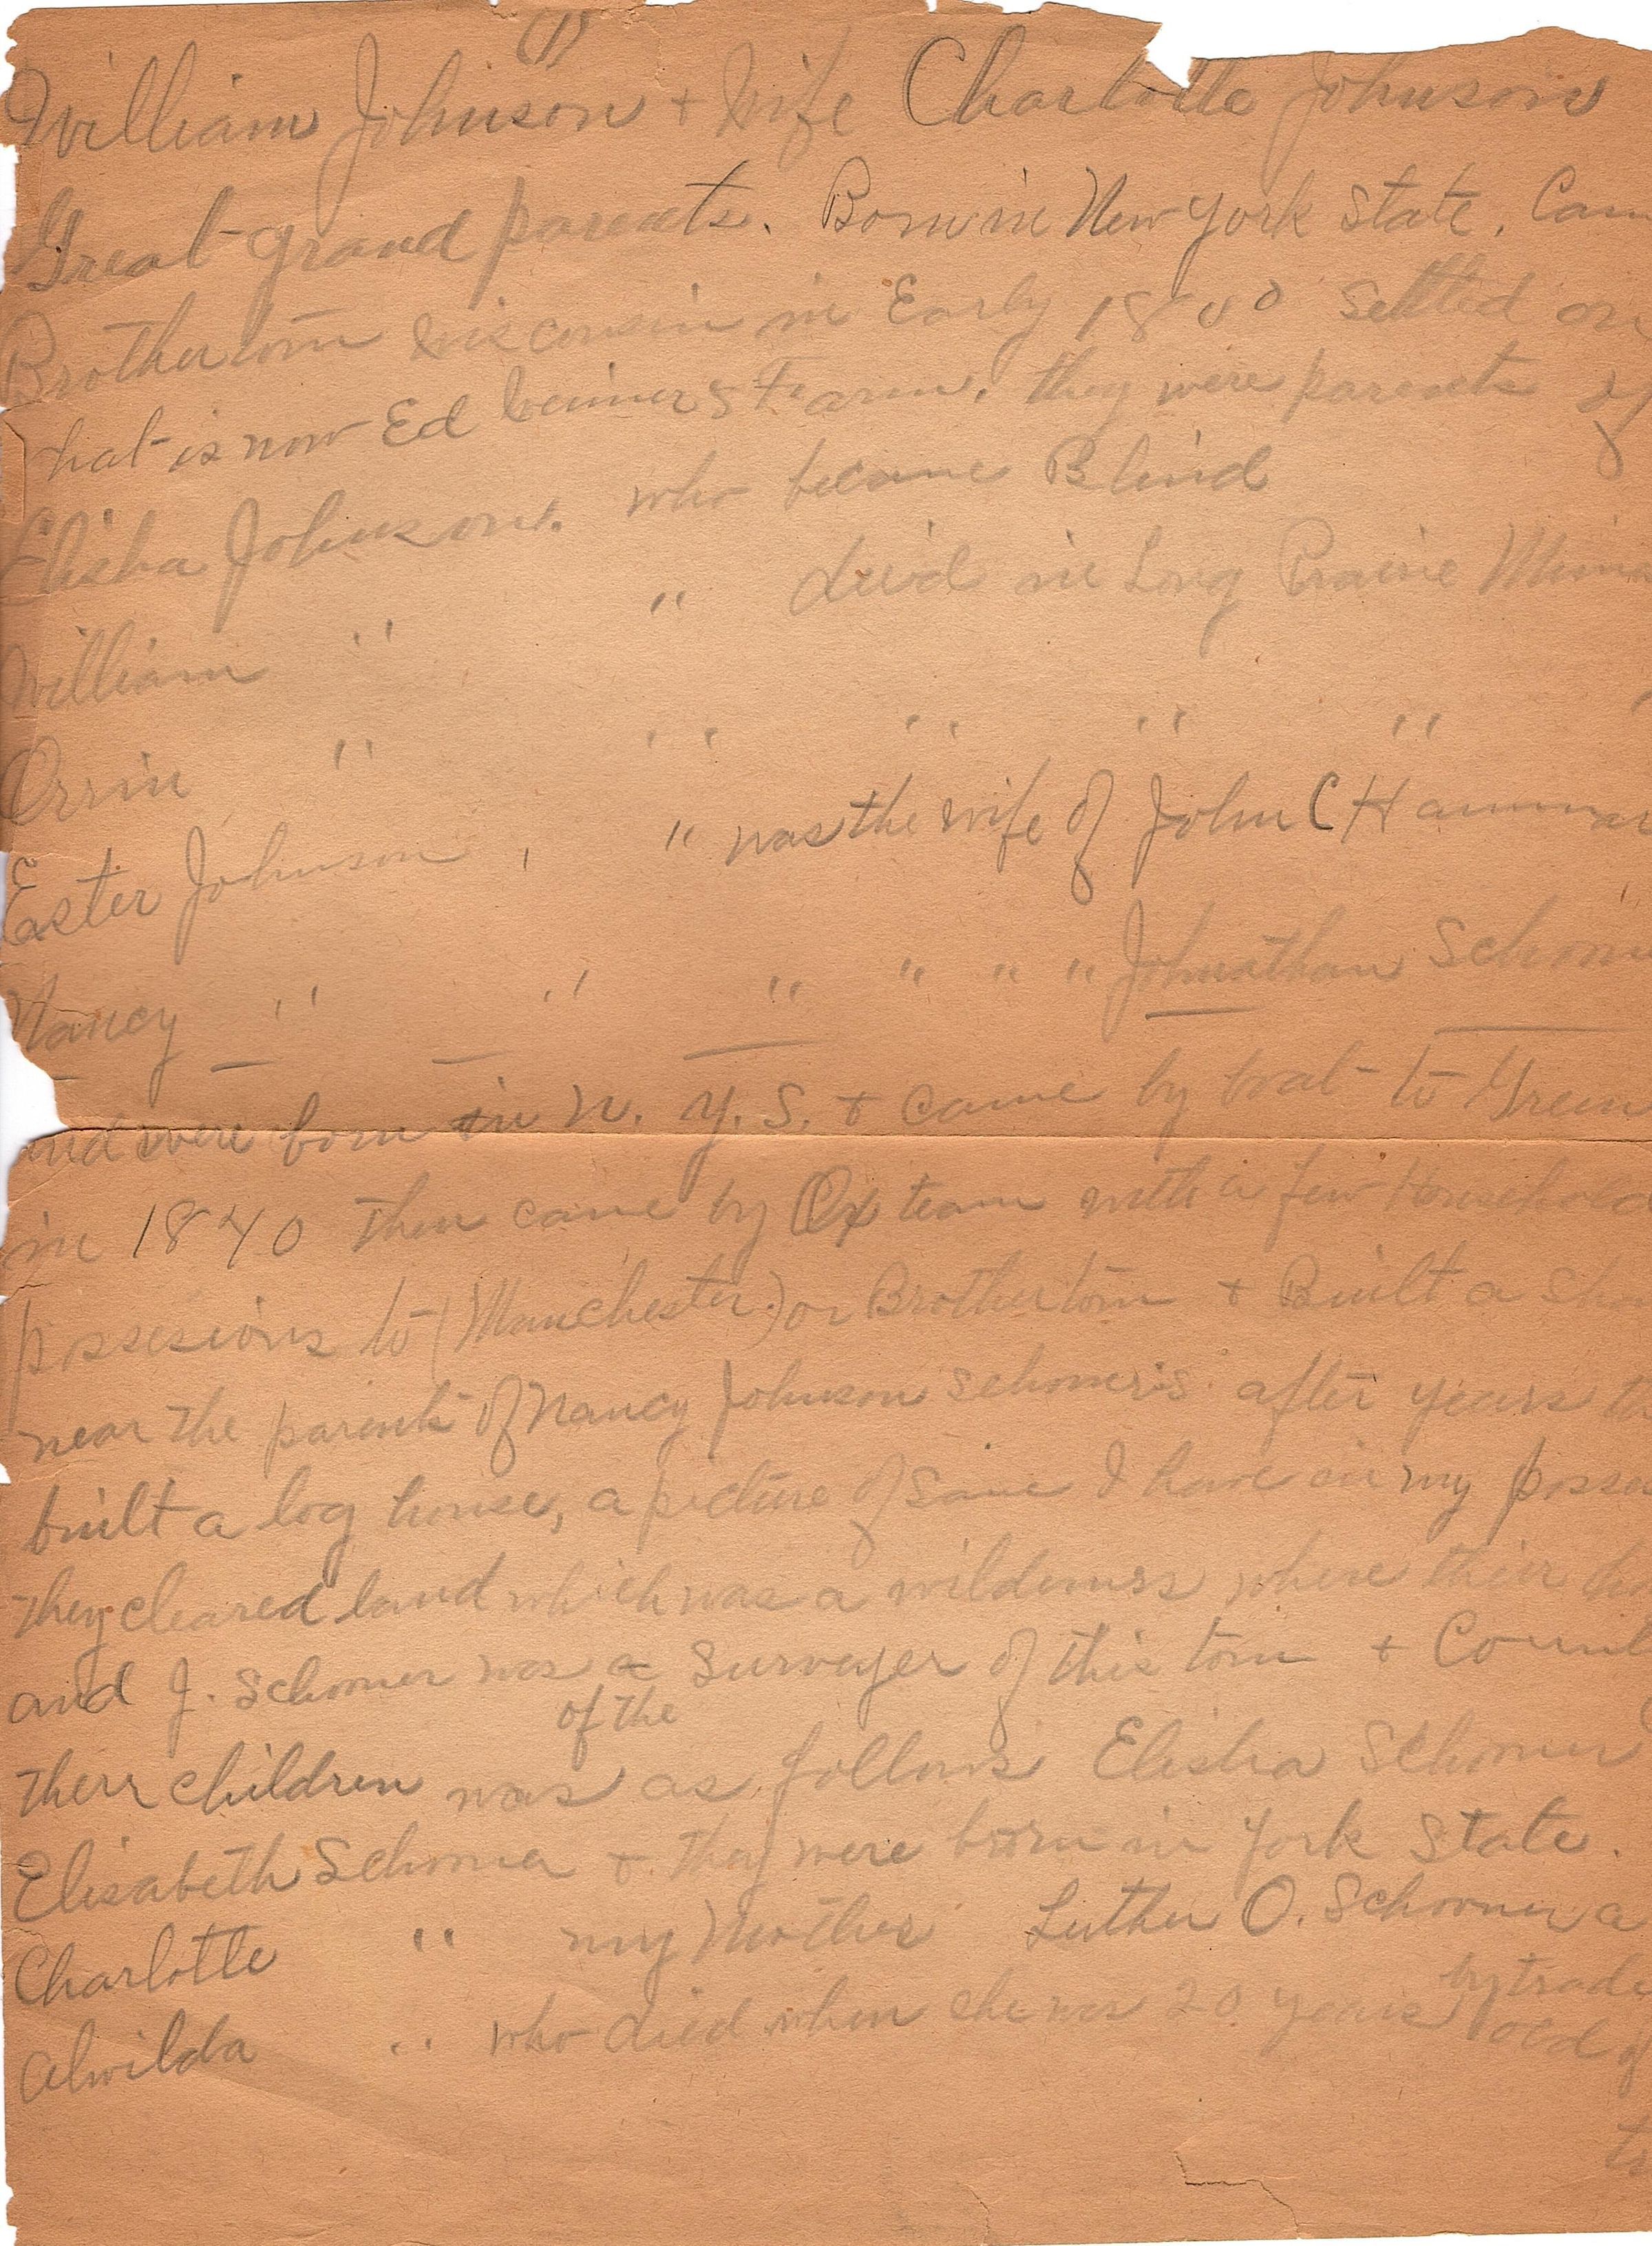 (1)
William Johnson + Wife Charlotte Johnson
Great grand parents. Born in New York State. Cam
Brothertown Wisconsin in Early 1800 settled on
hat is now Ed Weiners Farm. they were parents of
Elisha Johnson. who became Blind
William " " died in Long Prairie Minn
Orrin " " " " "
Ester Johnson, " was the wife of John C Hammar
Nancy " " " " " " Johnathan Schoone
and were born in N. Y. S. + came by boat to Green
in 1840 then came by Ox team with a few Household
possesions to (Manchester) or Brothertown + Built a
near the parents of Nancy Johnson Schooners. after years th
built a log house, a picture of same I have in my posse
they cleared land which was a wilderness where their
and J. Schooner was a Surveyer of this town + Count
of the
Therr children was as follows Elisha Schooner
Elisabeth Schooner + they were born in York State.
Charlotte " my Mother Luther O. Schooner a
by trade
Alwilda " who died when she was 20 years old of